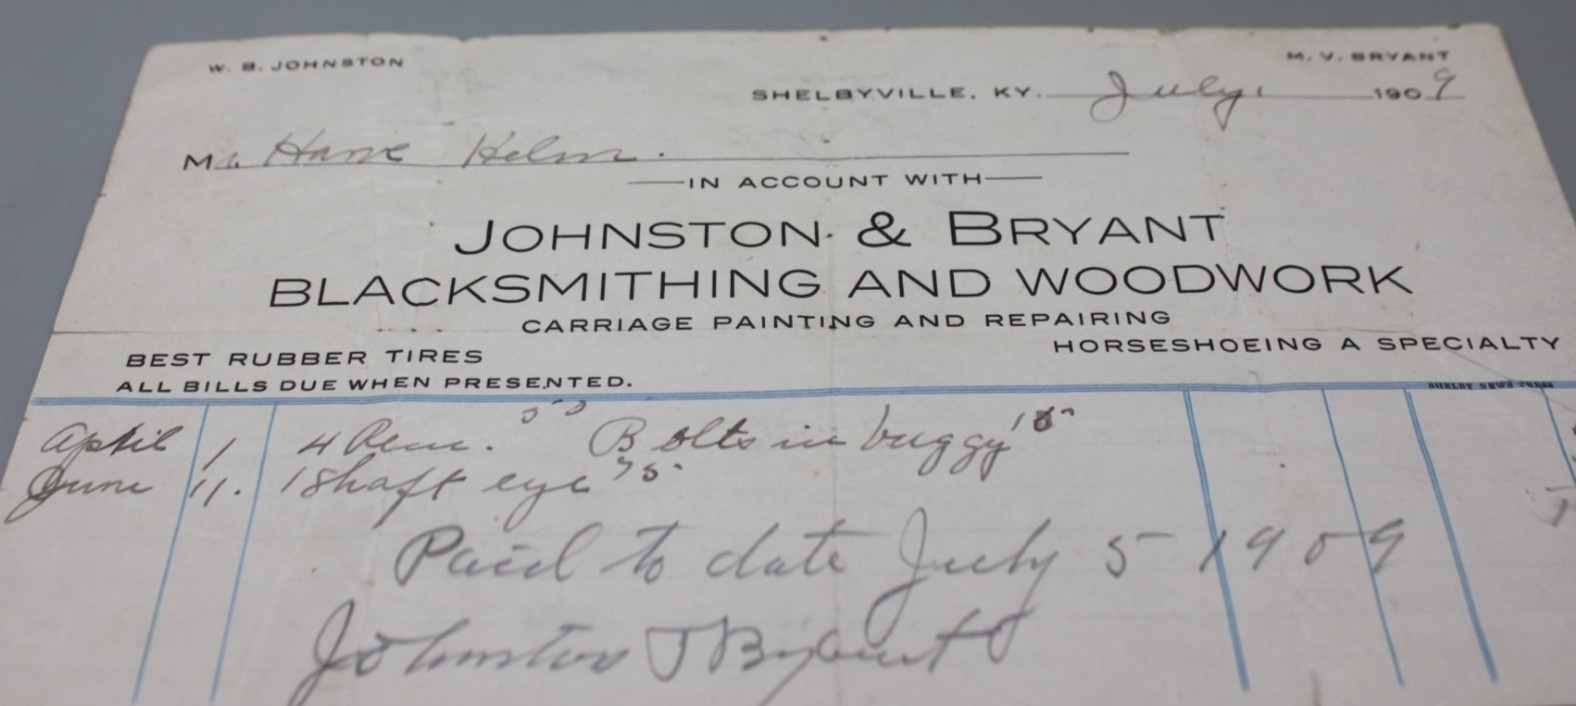 W. B. JOHNSTON M. V. BRYANT
SHELBYVILLE, KY. July. 1909
Mr. Helm.
IN ACCOUNT WITH
JOHNSTON & BRYANT
BLACKSMITHING AND WOODWORK
CARRIAGE PAINTING AND REPAIRING
BEST RUBBER TIRES HORSESHOEING A SPECIALTY
ALL BILLS DUE WHEN PRESENTED.
SHELBY NEWS PRESS
April 1 4 Rem. Bolts in buggy
June 11. 1 Shaft eye 75
Paid to date July 5 1909
Johnston & Bryant